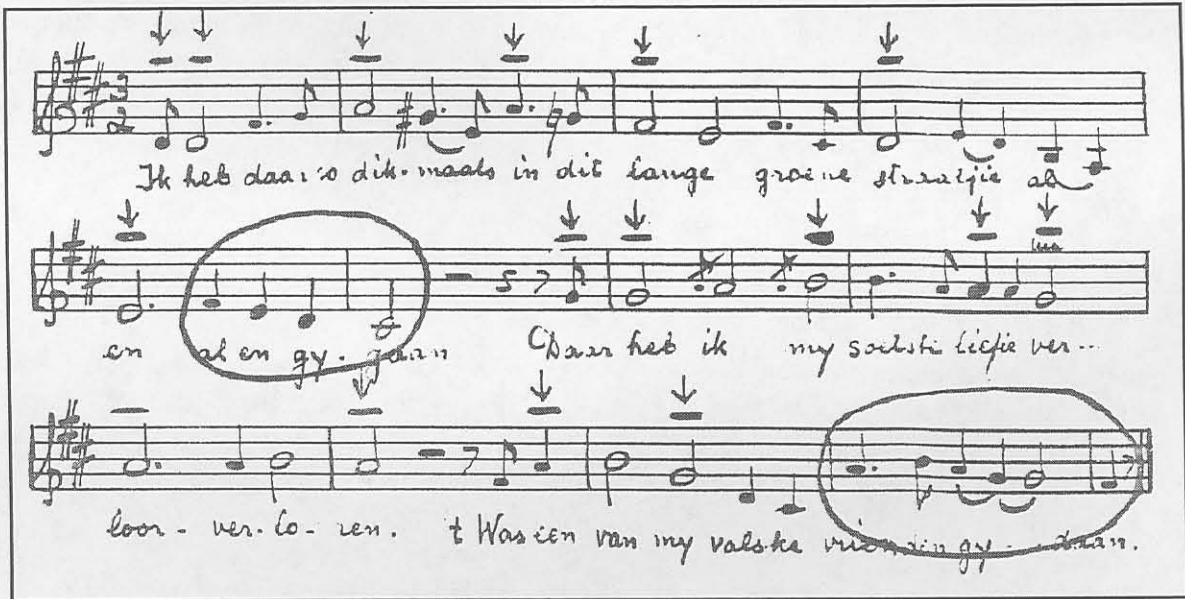 3
2
Ik het daar so dik-maals in dit lange groene straatjie al
en al en gy-gaan Daar het ik my soetste liefie ver--
loor-ver-lo-ren. t Was een van my valske vrienden gy-daan.